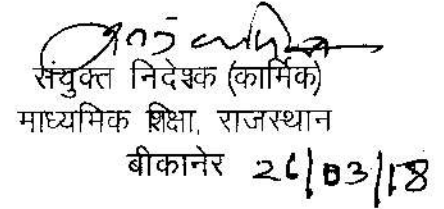 संयुक्त निदेशक (कार्मिक)
माध्यमिक शिक्षा, राजस्थान
बीकानेर 26/03/18